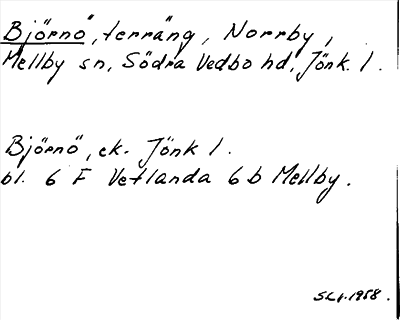 Björnö, terräng, Norrby,
Mellby sn, Södra Vedbo hd, Jönk. l.
Björnö, ek. Jönk l.
bl. 6 F Vetlanda 6 b Mellby.
1958.